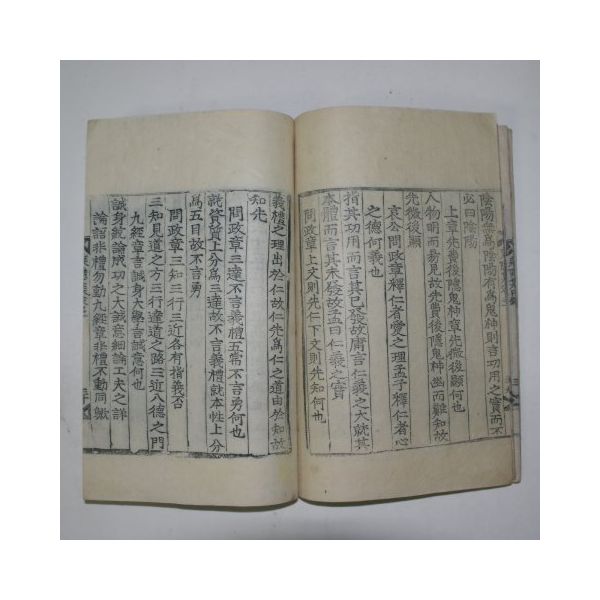 陰陽無爲陰陽有爲鬼神則言功用之實而不
必曰陰陽
上章先費後隱鬼神章先微後顯何也
人物明而易見故先費後隱鬼神幽而難知故
先微後顯
哀公問政章釋仁者愛之理孟子釋仁者心
之德何義也
指其功用而言其已發故庸言仁義之大就其
本體而言其未發故孟曰仁義之實
問政章上文則先仁下文則先知何也
義禮之理出於仁故仁先爲仁之道由於知故
知先
問政章三達不言義禮五常不言勇何也
就資質上分爲三達故不言義禮就本性上分
爲五目故不言勇
問政章三知三行三近各有指義否
三知見道之方三行達道之路三近入德之門
九經章言誠身大學言誠意何也
誠身統論成功之大誠意細論工夫之詳
論語非禮勿動九經章非禮不動同歟